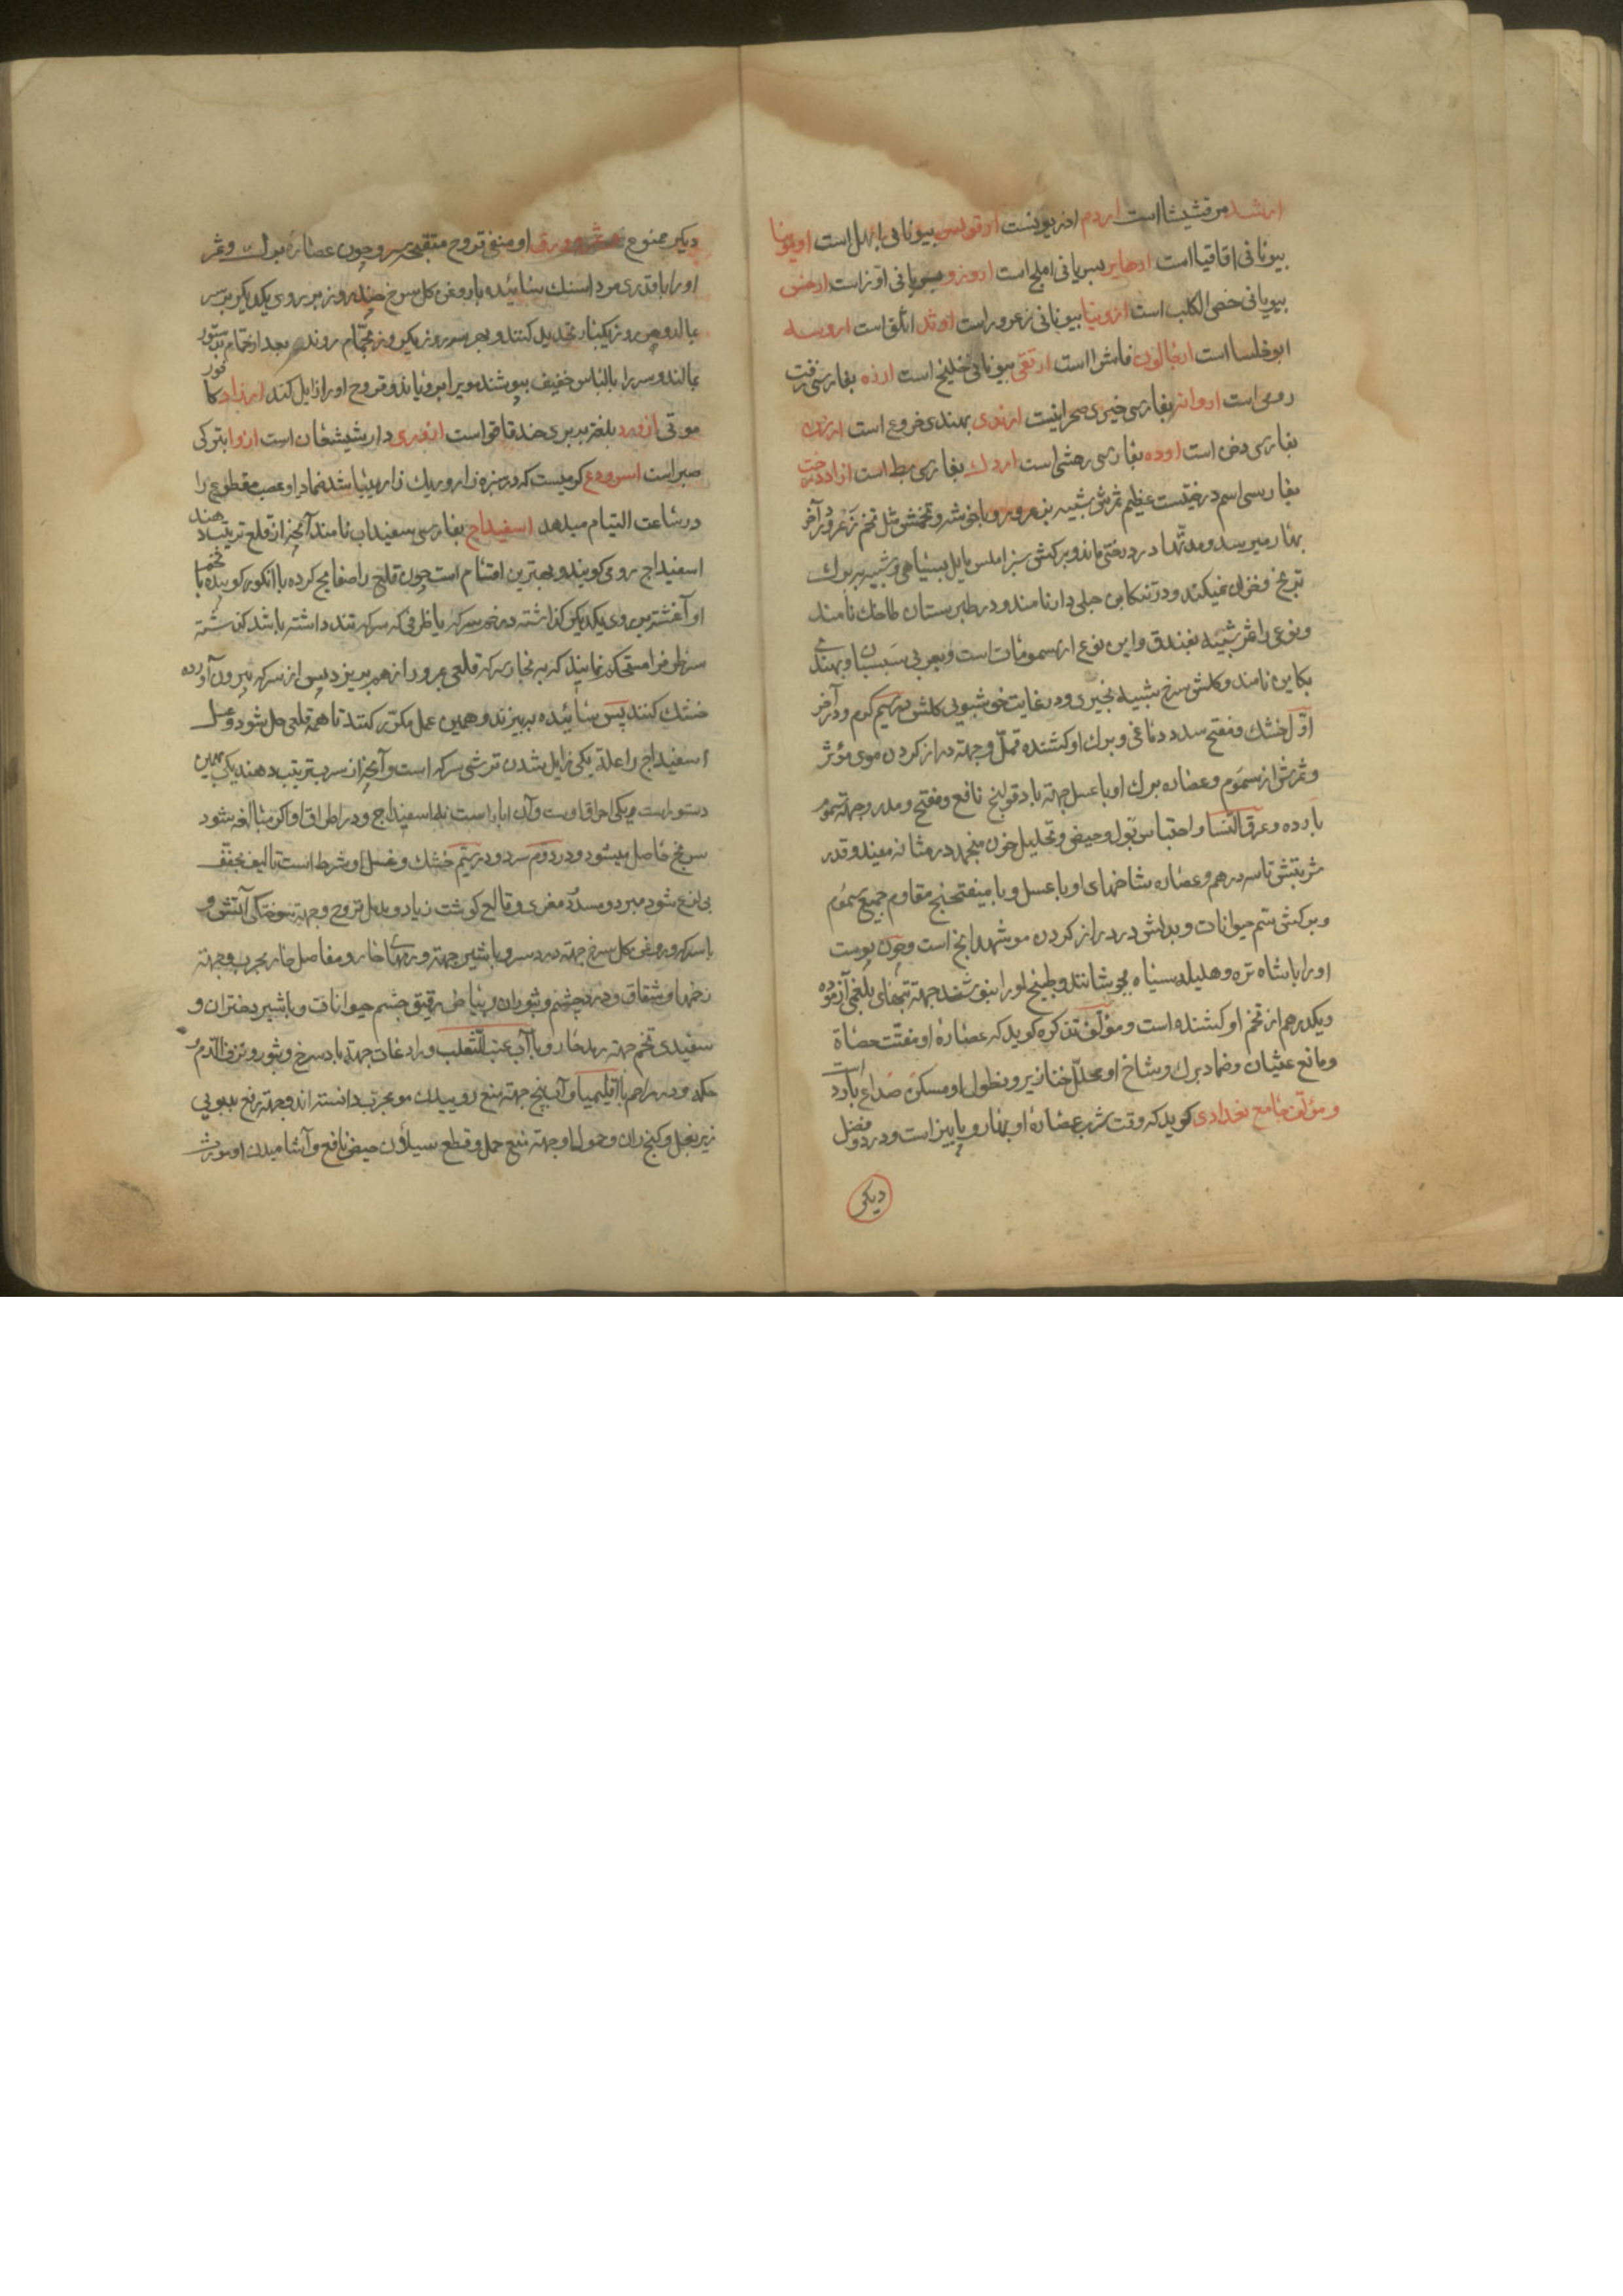 ارشد مرقشیشا است اردم اذریونست ارقولس بیونانی ابهل است اویونا
بیونانی اقاقیا است ارهایر بسریانی املج است ارونرو بسریانی اوز است ارخس
بیونانی خصی الکلب است ارونیا بیونانی زعرور است اوثد انگو است اروسه
ابوخلسا است ارخالون فاشرا است ارتقی بیونانی خلیج است ارزه بفارسی زفت
رومی است اروانه بفارسی خیری صحرائیست ارندی بهندی خروع است ارزن
بفارسی دخن است اوده بفارسی رهشی است اردك بفارسی بط است ازاددرخت
بفارسی اسم درختیست عظیم ثمرش شبیه بزعرور و با خوشه و تخمش مثل تخم زعرور و در آخر
بهار میرسد و مدتها در درخت میماند و برکش سبز املس مایل بسیاهی و شبیه ببرك
ترنج و خزان نمیکند و در تنکابن جلی دار نامند و در طبرستان طاحك نامند
و نوعی را ثمر شبیه بفندق و این نوع از سمومات است و بعربی سیسبان و بهندی
بکاین نامند و کلش سرخ شبیه بخیری و در غایت خوشبویی کلش در سیم کرم و در آخر
اول خشك و مفتح سدد دماغی و برك او کشنده قمل و جهته دراز کردن موی مؤثر
و ثمرش از سموم و عصاره برك او با عسل جهته باد قولنج نافع و مفتح و مدر و جهته سموم
بارده و عرق النسا و احتباس بول و حیض و تحلیل خون منجمد در مثانه مفید و قدر
شربتش تا سه درهم و عصاره شاخهای او با عسل و با میفختج مقاوم جمیع سموم
و برکش سم حیوانات و بدلش در دراز کردن مو شهدانج است و چون پوست
او را با شاه تره و هلیله سیاه بجوشانند و طبیخ او را بنوشند جهته تبهای بلغمی آزموده
و یکدرهم از تخم او کشنده است و مؤلف تذکره کوید که عصاره او مفتت حصاة
و مانع غثیان و ضماد برك و شاخ او محلل خنازیر و نطول او مسکن صداع بارد است
و مؤلف جامع بغدادی کوید که وقت شرب عصاره او بهار و پاییز است و در دو فصل
دیکر
دیکر ممنوع او منقی قروح متقیحه سر و چون عصاره برك و ثمر
او را با قدری مرداسنك سائیده با روغن کل سرخ چند روز بر روی یکدیکر بر سر
بمالند و هر روز یکبار تجدید کنند و بهر سه روز یکروز بحمام روند و بعد از حمام بدستور
بمالند و سر را بالباس خفیف بپوشند موی را برویاند و قروح او را زایل کند ازراد کافور
موتی ازورد بلغت بربری حندقاقوا است ازدری دارشیشعان است ازوا بترکی
صبر است اسرودع کرمیست که در سبزه زار و ریك زار پیدا باشد ضماد او عصب مقطوع را
در ساعت التیام میدهد اسفیداج بفارسی سفیداب نامند آنچه از قلع ترتیب دهند
اسفیداج رومی کویند و بهترین اقسام است چون قلع را صفایح کرده با انکور کوبیده با تخم
او آغشته بر روی یکدیکر کذاشته در خم سرکه یا ظرفی که سرکه تند داشته باشد کذاشته
سر ظرف را مستحکم نمایند که ببخار سرکه قلعی بمرور از هم بریزد پس از سرکه بیرون آورده
خشك کنند پس سائیده ببیزند و همین عمل مکرر کنند تا همه قلعی حل شود و غسل
اسفیداج را علة یکی زایل شدن ترشی سرکه است و آنچه از سرب ترتیب دهند یکی بهمین
دستور است و یکی احراق اوست و آن ابار است نه اسفیداج و در احراق او اکر مبالغه شود
سرنج حاصل میشود و در دوم سرد و در سیم خشك و غسل او شرط است تا لیف مجفف
بی لذع شود مبرد و مسدد مغری و قالع کوشت زیاد و مدمل قروح و جهته سوختکی آتش و
با سرکه و روغن کل سرخ جهته درد سر و با شیر جهته ورمهای حار و مفاصل حار مجرب و جهته
زخمها و شقاق و درد چشم و بثور آن و بیاض رقیق چشم حیوانات و با شیر دختران و
سفیدی تخم جهته رمد حار و با آب عنب الثعلب و رادعات جهته باد سرخ و بثور و نزف الدم و
حکه و در مراهم با اقلیمیا و آب بنج جهته منع روییدن مو مجرب دانسته اند و جهته رفع بدبویی
زیر بغل و کنج ران و حمول او جهته منع حمل و قطع سیلان حیض نافع و آشامیدن او مورث